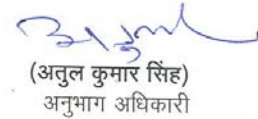 (अतुल कुमार सिंह)
अनुभाग अधिकारी